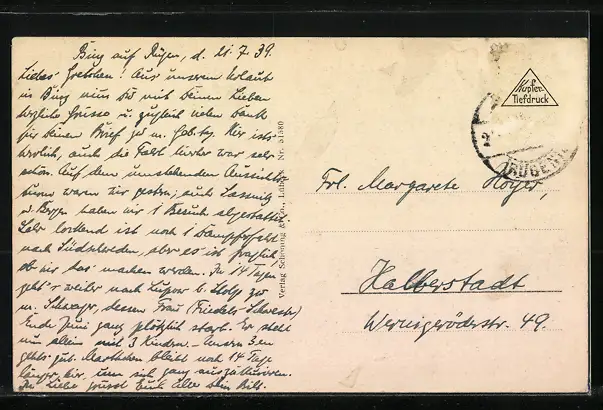 Binz auf Rügen, d. 21.7.39.
Liebes Gretchen! Aus unserem Urlaub
in Binz nimm Du mit Deinen Lieben
herzliche Grüsse u. zugleich vielen Dank
für Deinen Brief zu m. Gebtg. Hier ist's
herrlich, auch die Fahrt hierher war sehr
schön. Auf dem umstehenden Aussichts-
turm waren wir gestern; auch Sassnitz
u. Bergen haben wir 1 Besuch abgestattet.
Sehr lockend ist noch 1 Dampferfahrt
nach Südschweden, aber es ist fraglich,
ob wir das machen werden. In 14 Tagen
geht's weiter nach b. Stolp zu
m. Schwager, dessen Frau (Friedels Schwester)
Ende Juni ganz plötzlich starb. Er steht
nun allein mit 3 Kindern.
geht's gut. bleibt noch 14 Tage
länger hier, um sich ganz auszukurieren.
In Liebe grüsst Euch alle Dein
Verlag Schöning & Co., Lübeck Nr. 51580
Kupfer-
Tiefdruck
(RÜGEN)
Frl. Margarete Hoyer,
Halberstadt
Wernigeröderstr. 49.